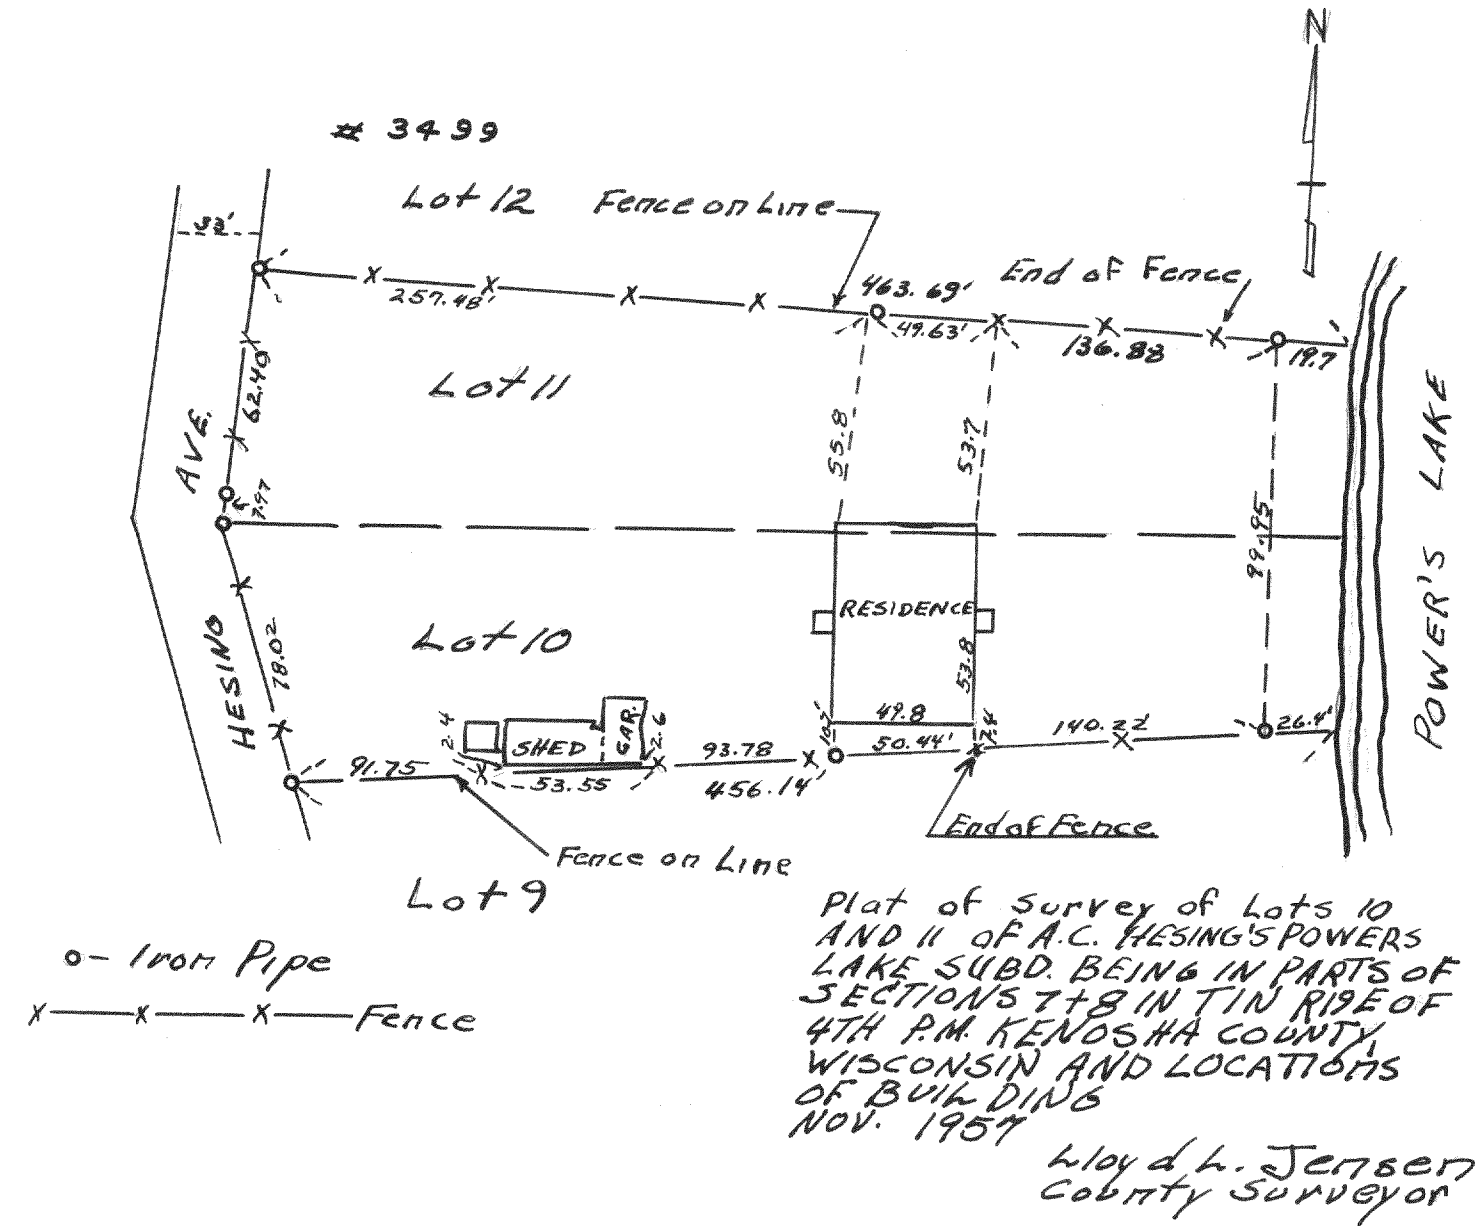 N
# 3499
Lot 12 Fence on Line
33'
463.69'
End of Fence
257.48'
49.63'
136.88
19.7
62.40
Lot 11
AVE.
7.97
55.8
53.7
99.95
POWER'S LAKE
RESIDENCE
Lot 10
HESING
78.02
53.8
2.4
SHED
GAR.
2.6
49.8
50.44'
140.22'
26.4'
91.75
93.78
53.55
456.14'
End of Fence
Fence on Line
Lot 9
o- Iron Pipe
x x x Fence
Plat of Survey of Lots 10
AND 11 of A.C. HESING'S POWERS
LAKE SUBD. BEING IN PARTS OF
SECTIONS 7+8 IN T1N R19E OF
4TH P.M. KENOSHA COUNTY,
WISCONSIN AND LOCATIONS
OF BUILDING
NOV. 1957
Lloyd L. Jensen
County Surveyor